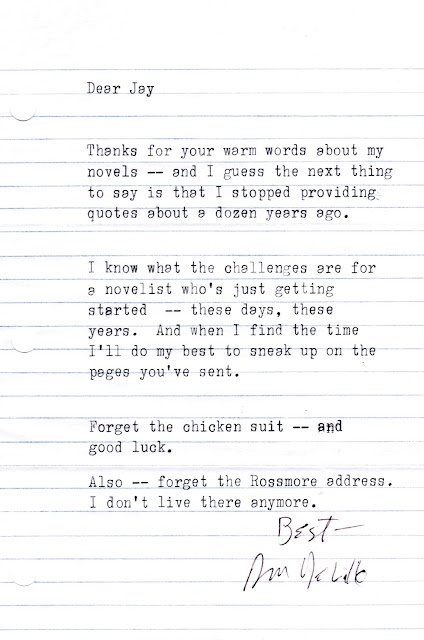 Dear Jay
Thanks for your warm words about my
novels -- and I guess the next thing
to say is that I stopped providing
quotes about a dozen years ago.
I know what the challenges are for
a novelist who's just getting
started -- these days, these
years. And when I find the time
I'll do my best to sneak up on the
pages you've sent.
Forget the chicken suit -- and
good luck.
Also -- forget the Rossmore address.
I don't live there anymore.
Best—
Don DeLillo